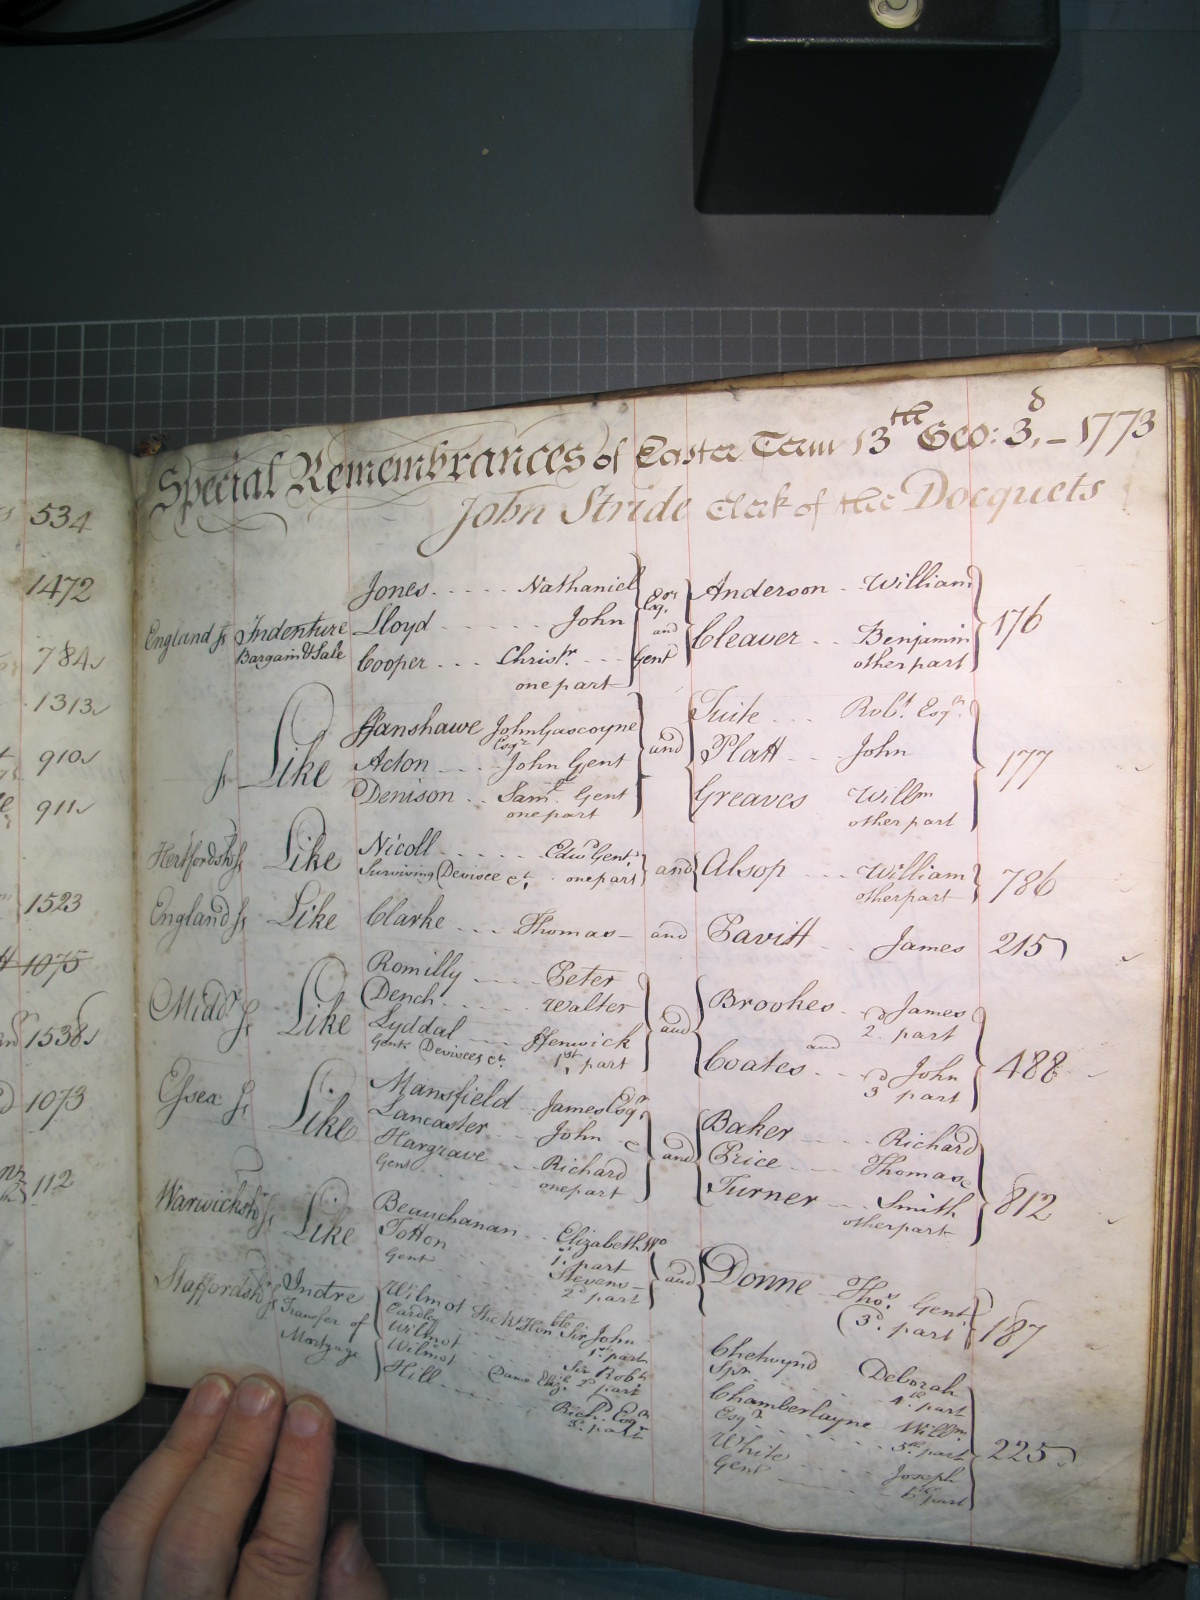 534
1472
784
1313
910
911
1523
1075
1538
1073
112
Special Remembrances of Easter Term 13th Geo: 3d, - 1773
John Stride Clerk of the Docquets
Jones - - - - - Nathaniel Esqrs Anderson - William
England ss Indenture Lloyd - - - - - John and 176
Bargain & Sale Cleaver - - Benjamin
Cooper - - - Christr. - - - Gent other part
one part
ffanshawe John Gascoyne Tuite - - - Robt. Esqr.
Esqr
ss Like Acton - - - John Gent and Platt - - John 177
Denison - - Saml. Gent Greaves Willm
one part other part
Hertfordsh ss Like Nicoll - - - - - Edwd Gent. and Alsop - - - William 786
Surviving Devisee &c. one part other part
England ss Like Clarke - - - Thomas - and Pavitt - - James 215
Romilly - - - Peter
Middx ss Like Dench - - - - Walter Brookes - - James
2d part
Lyddal - - - ffenwick and and 488
Gents Devisees &c. 1st part Coates - - - John
3d part
Essex ss Like Mansfield - James Esqr. Baker - - - Richard
Lancaster - - John and Price - - - Thomas
Hargrave - - Richard Turner - - Smith 812
Gens one part other part
Warwicksh ss Like Beauchanan - - Elizabeth Wo
1st. part
Totton Stevens and Donne - Thos. Gent 187
Gent 2d part 3d. part
Staffordsh ss Indre Wilmot The Rt. Honble Sir John
Transfer of Eardley 1st part
Mortgage Wilmot - - - - Sir Robt
2d part
Wilmot - - Dame Eliz.
Hill - - - - Richd. Esqr
3d. part
Chetwynd Deborah
Spr - - - - 4th part
Chamberlayne Willm
Esqr - - - - 5th part 225
White - - - - Joseph
Gent - - - - 6th part